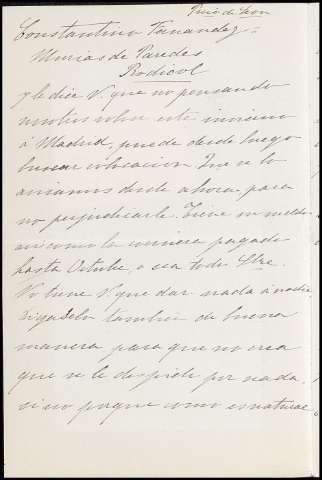 Prov. de Leon
Constantino Fernandez =
Murias de Paredes
Rodicol
y le dice V. que no pensando
nosotros volver este invierno
á Madrid, puede desde luego
buscar colocacion. Que se lo
avisamos desde ahora, para
no perjudicarle. Tiene su sueldo
asi como la comida pagado
hasta Octubre, o sea todo Sbre.
No tiene V. que dar nada á nadie.
Digaselo tambien de buena
manera para que no crea
que se le despide por nada,
sino porque como es natural